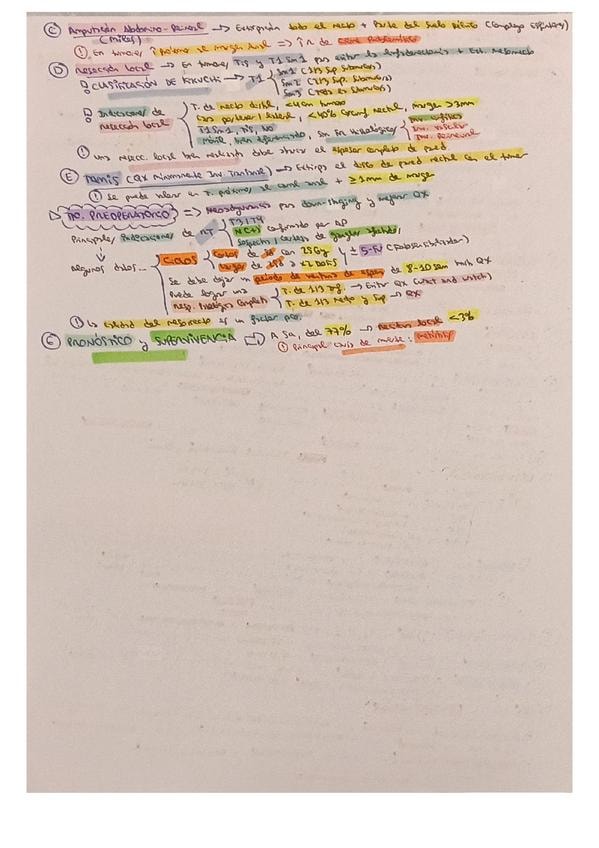 C Amputación Abdomino-Perineal → Extirpación todo el recto + Parte del suelo pélvico (Complejo Esfinter)
(Miles)
! En tumores próximos al margen anal ⇒ de
D Resección local → En tumores Tis y T1 Sm1 para evitar la + Ext. Mesorrecto
CLASIFICACIÓN DE KIKUCHI → T1
Sm1 (1/3 Sup Submucosa)
Sm2 (2/3 Sup. Submucosa)
Sm3 (Submucosa)
Indicaciones de resección local
T. de recto distal, <4cm tamaño
<40% Circunf rectal, margen >3mm
T1 Sm1, Tis, N0
Móvil, bien diferenciado, sin Inv.
Inv. linfática
Inv. vascular
Inv. Perineural
! Una resecc. local bien realizada debe abarcar el espesor completo de pared
E TAMIS (QX Mínimamente Inv. Transanal) → Extirpo el disco de pared rectal con el tumor
! Se puede valorar en T. próximos al canal anal + ≥1mm de margen
TTO. PREOPERATORIO ⇒ Neoadyuvancia para down-staging y mejorar QX
Principales Indicaciones de NT
T3/T4
N(+) confirmado por AP
Sospecha/certeza de ganglios afectados
Algunos datos...
Ciclos
Cortos de con 25Gy
Largos de
± 5-FU (Radiosensibilizador)
Se debe dejar un periodo de ventana de espera de 8-10 sem hasta QX
Puede lograr una Resp. Patológica Completa
T. de 1/3 Inf. → Evitar QX (Wait and watch)
T. de 1/3 Medio y Sup → QX
! La calidad del mesorrecto es un factor pro.
E PRONÓSTICO y SUPERVIVENCIA ⇒ A 5a, del 77% → Recidiva local <3%
! Principal causa de muerte: metástasis